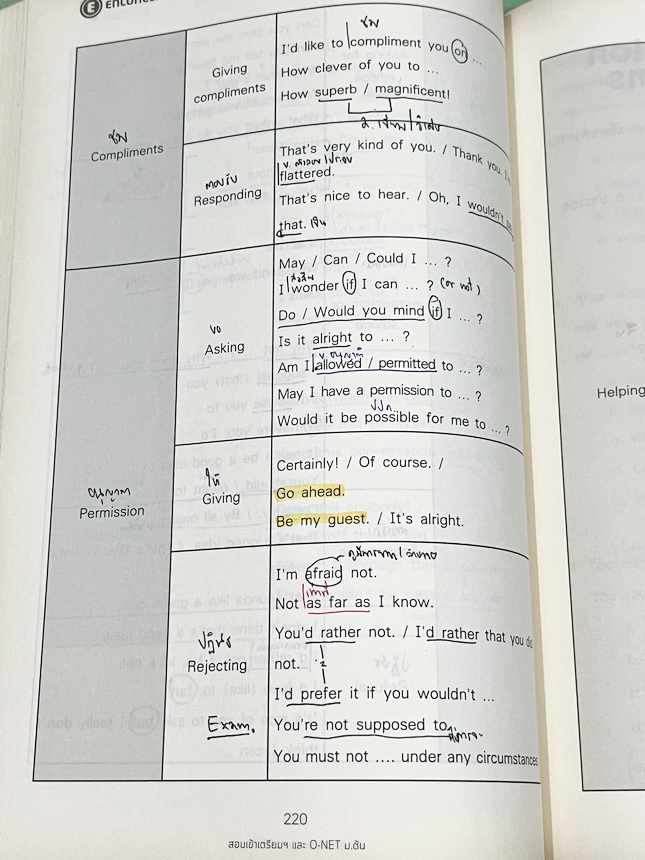 ชม
I'd like to compliment you on ...
How clever of you to ...
How superb / magnificent!
Giving
compliments
ชม
Compliments
That's very kind of you. / Thank you.
flattered.
That's nice to hear. / Oh, I wouldn't
that.
ตอบรับ
Responding
May / Can / Could I ... ?
I wonder if I can ... ? (or not)
Do / Would you mind if I ... ?
Is it alright to ... ?
v. อนุญาต
Am I allowed / permitted to ... ?
May I have a permission to ... ?
Would it be possible for me to ... ?
ขอ
Asking
อนุญาต
Permission
Certainly! / Of course. /
Go ahead.
Be my guest. / It's alright.
ให้
Giving
I'm afraid not.
เท่าที่
Not as far as I know.
You'd rather not. / I'd rather that you do
not.
I'd prefer it if you wouldn't ...
ปฏิเสธ
Rejecting
Exam.
You're not supposed to
You must not .... under any circumstances
Helping
220
สอบเข้าเตรียมฯ และ O-NET ม.ต้น